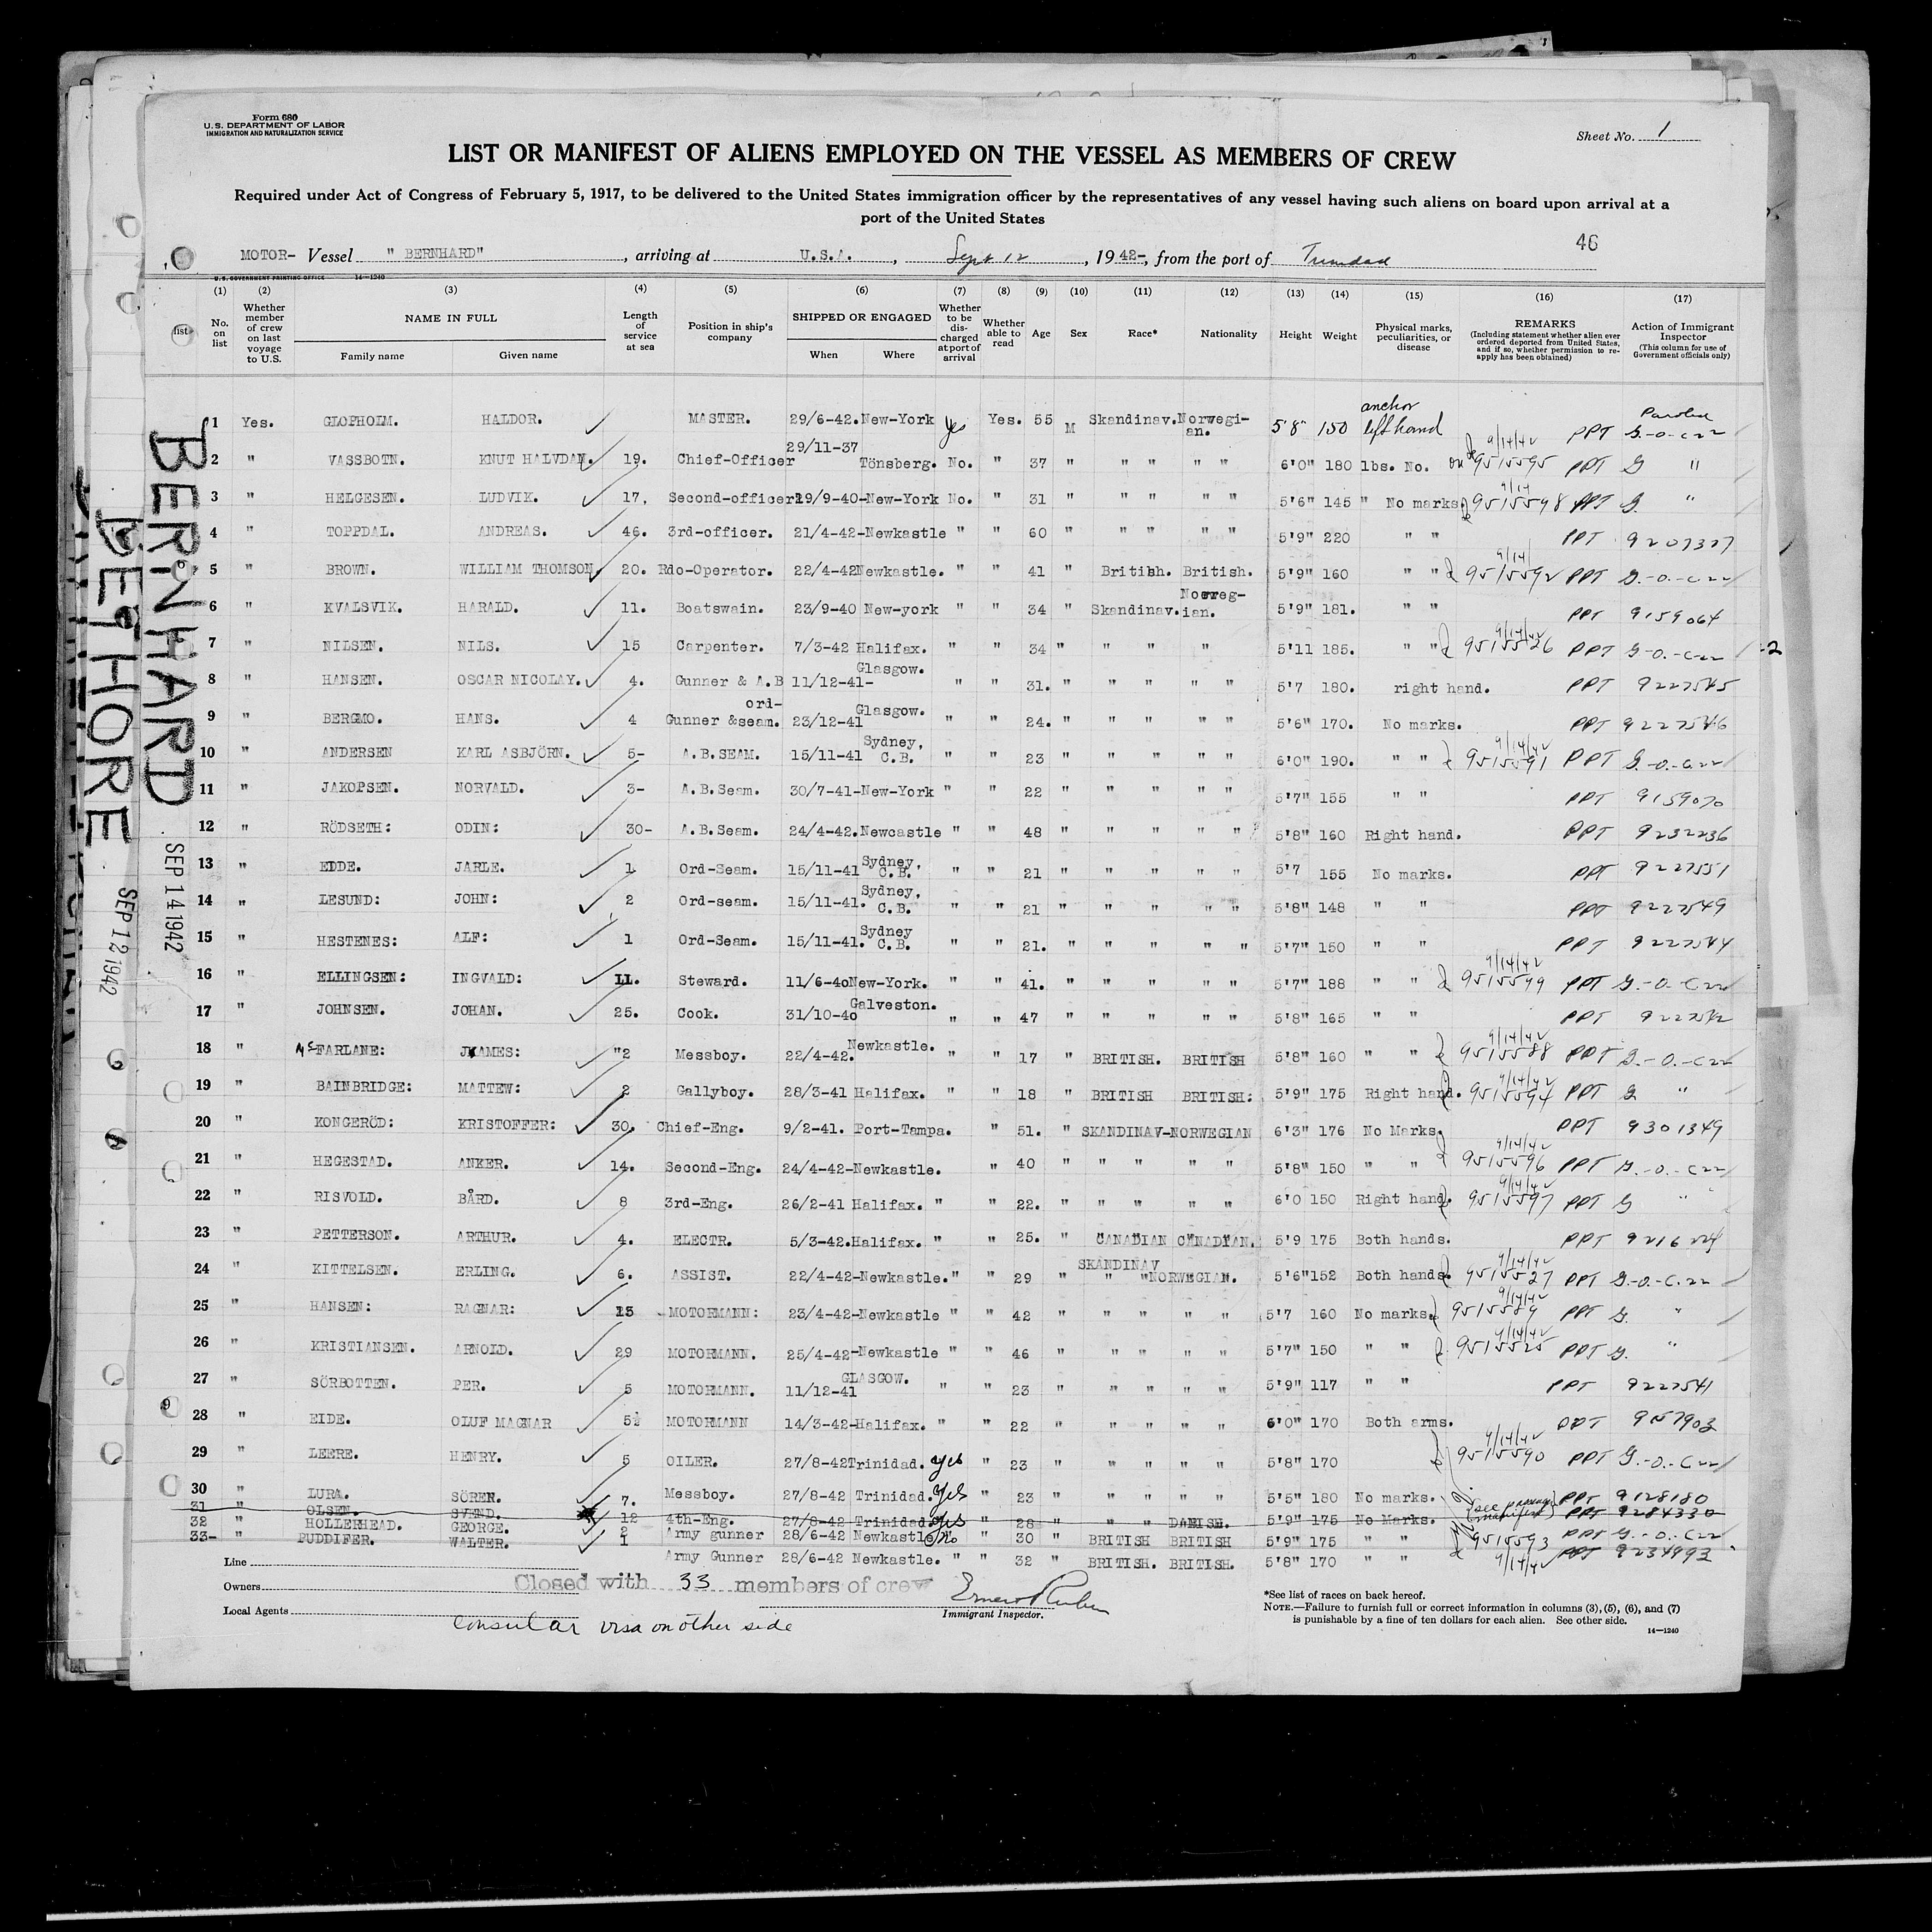 Form 680
U. S. DEPARTMENT OF LABOR
IMMIGRATION AND NATURALIZATION SERVICE
Sheet No. 1
LIST OR MANIFEST OF ALIENS EMPLOYED ON THE VESSEL AS MEMBERS OF CREW
Required under Act of Congress of February 5, 1917, to be delivered to the United States immigration officer by the representatives of any vessel having such aliens on board upon arrival at a
port of the United States
46
MOTOR- Vessel " BERNHARD" , arriving at U.S.A. , Sept 12 , 19 42-, from the port of Trinidad
U. S. GOVERNMENT PRINTING OFFICE 14—1240
(1) (2) (3) (4) (5) (6) (7) (8) (9) (10) (11) (12) (13) (14) (15) (16) (17)
No. on list
Whether member of crew on last voyage to U.S.
NAME IN FULL
Family name Given name
Length of service at sea
Position in ship's company
SHIPPED OR ENGAGED
When Where
Whether to be discharged at port of arrival
Whether able to read
Age
Sex
Race*
Nationality
Height
Weight
Physical marks, peculiarities, or disease
REMARKS
(Including statement whether alien ever ordered deported from United States, and if so, whether permission to reapply has been obtained)
Action of Immigrant Inspector
(This column for use of Government officials only)
list
1 Yes. GLOPHOLM. HALDOR. MASTER. 29/6-42. New-York yes Yes. 55 M Skandinav. Norwegi-an. 5'8" 150 anchor left hand PPT Paroled G.-O-C22
2 " VASSBOTN. KNUT HALVDAN. 19. Chief-Officer 29/11-37 Tönsberg. No. " 37 " " " " " 6'0" 180 lbs. No. 9/14/42 9515595 PPT G "
3 " HELGESEN. LUDVIK. 17. Second-officer 19/9-40-New-York No. " 31 " " " " " 5'6" 145 " No marks. 9/14 9515598 PPT G. "
4 " TOPPDAL. ANDREAS. 46. 3rd-officer. 21/4-42-Newkastle " " 60 " " " " " 5'9" 220 " " PPT 9207327
5 " BROWN. WILLIAM THOMSON. 20. Rdo-Operator. 22/4-42Newkastle. " " 41 " British. British. 5'9" 160 " " 9/14/ 9515592 PPT G.-O-C22
6 " KVALSVIK. HARALD. 11. Boatswain. 23/9-40 New-york " " 34 " Skandinav. Norweg-ian. 5'9" 181. " " PPT 9159064
7 " NILSEN. NILS. 15 Carpenter. 7/3-42 Halifax. " " 34 " " " " 5'11 185. " " 9/14/42 9515526 PPT G-O.-C22 -2
8 " HANSEN. OSCAR NICOLAY. 4. Gunner & A.B 11/12-41- Glasgow. " " 31. " " " " " 5'7 180. right hand. PPT 9227545
9 " BERGMO. HANS. 4 Gunner & ord-seam. 23/12-41 Glasgow. " " 24. " " " " " 5'6" 170. No marks. PPT 9227546
10 " ANDERSEN KARL ASBJÖRN. 5- A.B.SEAM. 15/11-41 Sydney, C.B. " " 23 " " " " " 6'0" 190. " " 9/14/42 9515591 PPT G.-O.-C22
11 " JAKOPSEN. NORVALD. 3- A.B.Seam. 30/7-41-New-York " " 22 " " " " " 5'7" 155 " " PPT 9159070
12 " RÖDSETH: ODIN: 30- A.B.Seam. 24/4-42. Newcastle " " 48 " " " " " 5'8" 160 Right hand. PPT 9232236
13 " EDDE. JARLE. 1 Ord-Seam. 15/11-41 Sydney, C.B. " " 21 " " " " " 5'7 155 No marks. PPT 9227551
14 " LESUND: JOHN: 2 Ord-seam. 15/11-41. Sydney, C.B. " " 21 " " " " " 5'8" 148 " " PPT 9227549
15 " HESTENES: ALF: 1 Ord-Seam. 15/11-41. Sydney C.B. " " 21. " " " " " 5'7" 150 " " PPT 9227544
16 " ELLINGSEN: INGVALD: 11. Steward. 11/6-40New-York. " " 41. " " " " " 5'7" 188 " " 9/14/42 9515599 PPT G.-O.-C22
17 " JOHNSEN. JOHAN. 25. Cook. 31/10-40 Galveston. " " 47 " " " " " 5'8" 165 " " PPT 9227542
18 " McFARLANE: JAMES: "2 Messboy. 22/4-42. Newkastle. " " 17 " BRITISH. BRITISH 5'8" 160 " " 9/14/42 9515588 PPT G.-O.-C22
19 " BAINBRIDGE: MATTEW: 2 Gallyboy. 28/3-41 Halifax. " " 18 " BRITISH BRITISH: 5'9" 175 Right hand. 9/14/42 9515594 PPT G "
20 " KONGERÖD: KRISTOFFER: 30. Chief-Eng. 9/2-41. Port-Tampa. " 51. " SKANDINAV-NORWEGIAN 6'3" 176 No Marks. PPT 9301349
21 " HEGESTAD. ANKER. 14. Second-Eng. 24/4-42-Newkastle. " 40 " " " " " 5'8" 150 " " 9/14/42 9515596 PPT G.-O.-C22
22 " RISVOLD. BÅRD. 8 3rd-Eng. 26/2-41 Halifax. " " 22. " " " " " 6'0 150 Right hand. 9/14/42 9515597 PPT G "
23 " PETTERSON. ARTHUR. 4. ELECTR. 5/3-42. Halifax. " " 25. " CANADIAN CANADIAN. 5'9 175 Both hands. PPT 9216224
24 " KITTELSEN. ERLING. 6. ASSIST. 22/4-42-Newkastle. " " 29 " SKANDINAV NORWEGIAN. 5'6" 152 Both hands. 9/14/42 9515527 PPT G-O-C.22
25 " HANSEN: RAGNAR: 15 MOTORMANN: 23/4-42-Newkastle " " 42 " " " " " 5'7 160 No marks. 9/14/42 9515589 PPT G. "
26 " KRISTIANSEN. ARNOLD. 29 MOTORMANN. 25/4-42-Newkastle " " 46 " " " " " 5'7" 150 " " 9/14/42 9515525 PPT G. "
27 " SÖRBOTTEN. PER. 5 MOTORMANN. 11/12-41 GLASGOW. " " 23 " " " " " 5'9" 117 " " PPT 9227541
28 " EIDE. OLUF MAGNAR 5½ MOTORMANN 14/3-42-Halifax. " " 22 " " " " " 6'0" 170 Both arms. PPT 9157903
29 " LEERE. HENRY. 5 OILER. 27/8-42Trinidad. yes " 23 " " " " " 5'8" 170 9/14/42 9515590 PPT G.-O.-C22
30 " LURA. SÖREN. 7. Messboy. 27/8-42 Trinidad. Yes " 23 " " " " " 5'5" 180 No marks. PPT 9128180
31 " OLSEN. SVEND. 12 4th-Eng. 27/8-42 Trinidad. yes " 28 " " " DANISH. 5'9" 175 No Marks. (see passenger manifest) PPT 9284330
32 " HOLLERHEAD. GEORGE. 2 Army gunner 28/6-42 Newkastle No " 30 " BRITISH BRITISH 5'9" 175 " " 9515593 PPT G.-O.-C22
33- PUDDIFER. WALTER. 1 Army Gunner 28/6-42 Newkastle. " " 32 " BRITISH. BRITISH. 5'8" 170 " " 9/14/42 PPT 9234993
Line
Owners
Local Agents
Closed with 33 members of crew
Immigrant Inspector.
Consular visa on other side
*See list of races on back hereof.
NOTE.—Failure to furnish full or correct information in columns (3), (5), (6), and (7)
is punishable by a fine of ten dollars for each alien. See other side.
14—1240
BERNHARD
BETHORE
SEP 14 1942
SEP 12 1942
9